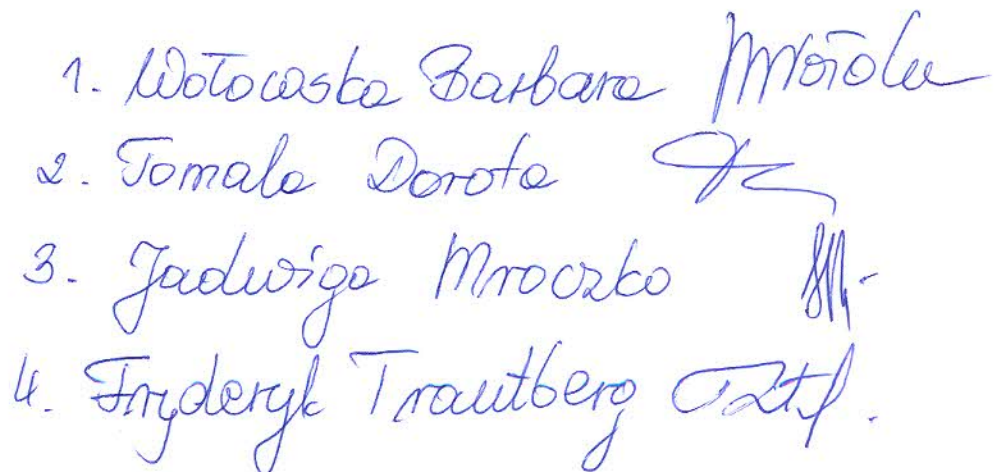 1. Wołowska Barbara
2. Tomala Dorota
3. Jadwiga Mroczko
4. Fryderyk Trautberg